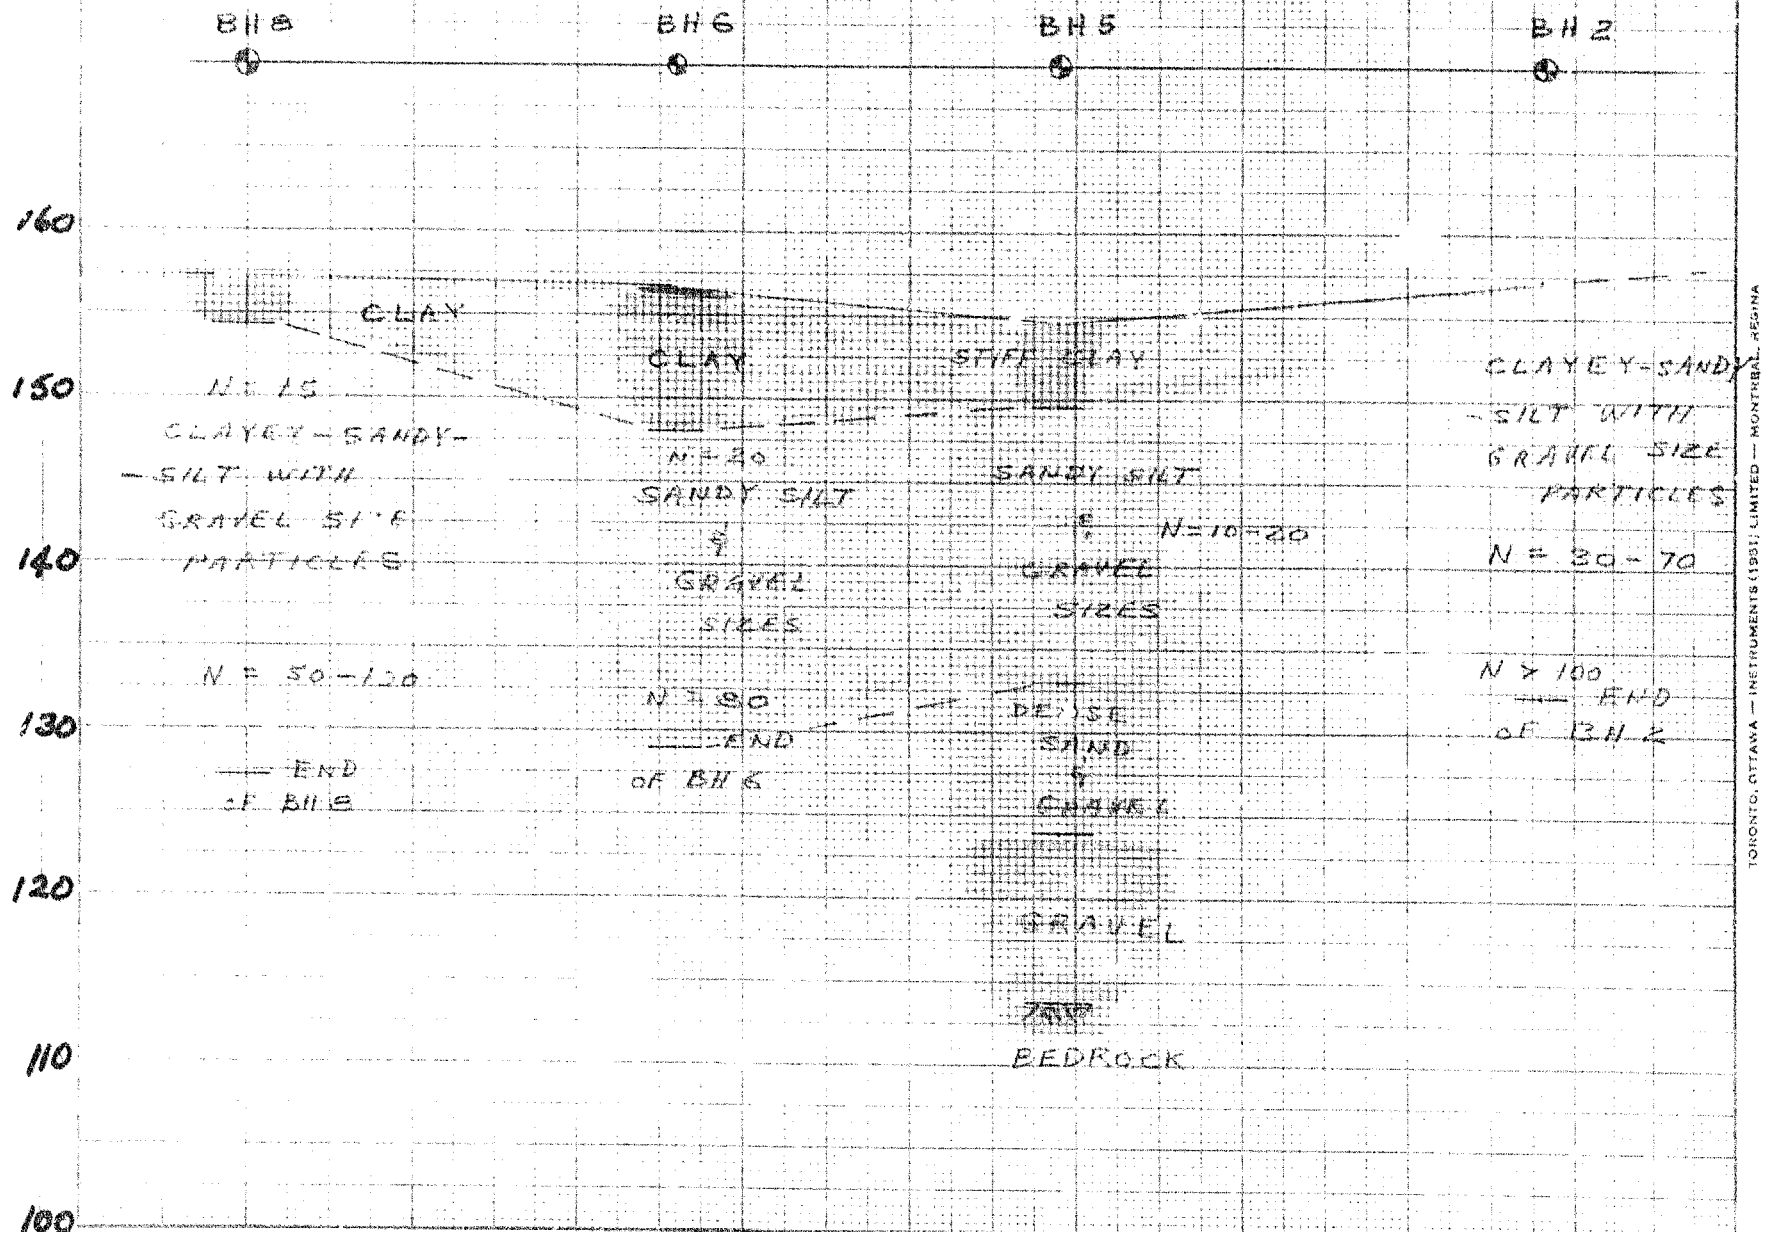 BH 8
BH 6
BH 5
BH 2
160
150
140
130
120
110
100
CLAY
N = 15
CLAYEY-SANDY-
-SILT WITH
GRAVEL SIZE
PARTICLES
N = 50-120
END
OF BH 8
CLAY
N = 20
SANDY SILT
&
GRAVEL
SIZES
N = 80
END
OF BH 6
STIFF CLAY
SANDY SILT
&
N = 10-20
GRAVEL
SIZES
DENSE
SAND
&
GRAVEL
GRAVEL
BEDROCK
CLAYEY-SANDY
-SILT WITH
GRAVEL SIZE
PARTICLES
N = 30-70
N > 100
END
OF BH 2
TORONTO, OTTAWA — INSTRUMENTS (1951) LIMITED — MONTREAL, REGINA